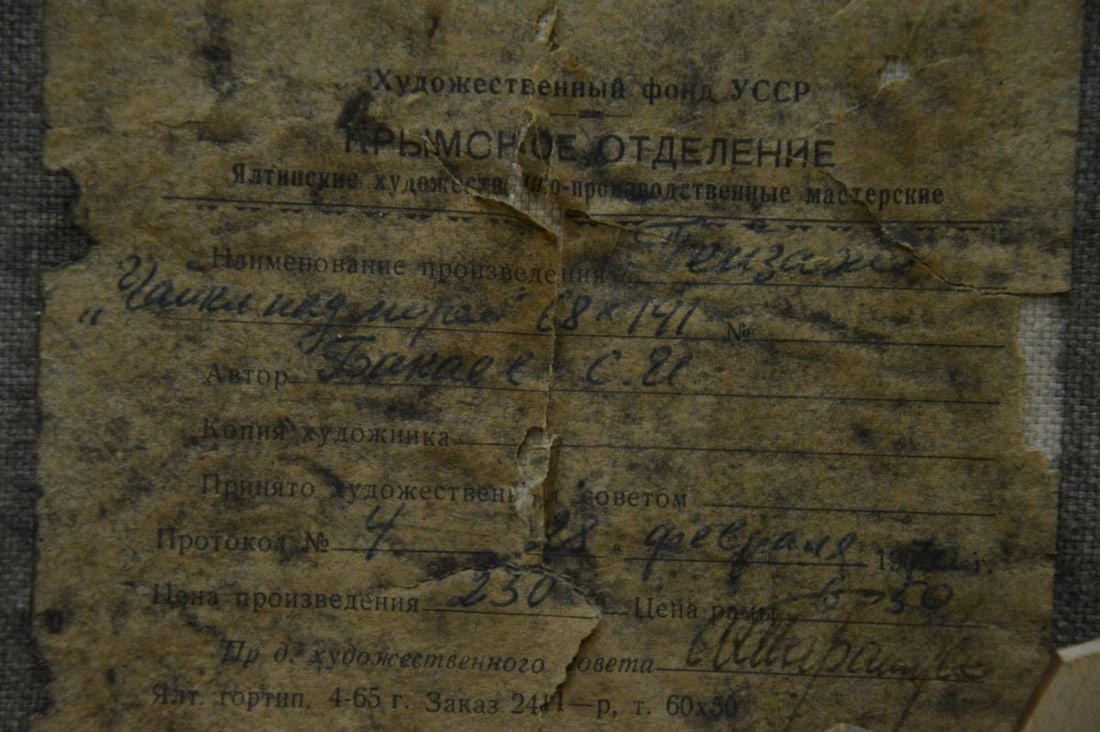 Художественный фонд УССР
КРЫМСКОЕ ОТДЕЛЕНИЕ
Ялтинские художественно-производственные мастерские
Наименование произведения Пейзаж
„Чайки над морем" 68х141 №
Автор Бакаев С. И.
Копия художника
Принято художественным советом
Протокол № 4 28 февраля 197 г.
Цена произведения 250 Цена рамы 6-50
Пр д. художественного совета
Ялт. гортип. 4-65 г. Заказ 2411—р, т. 60х50